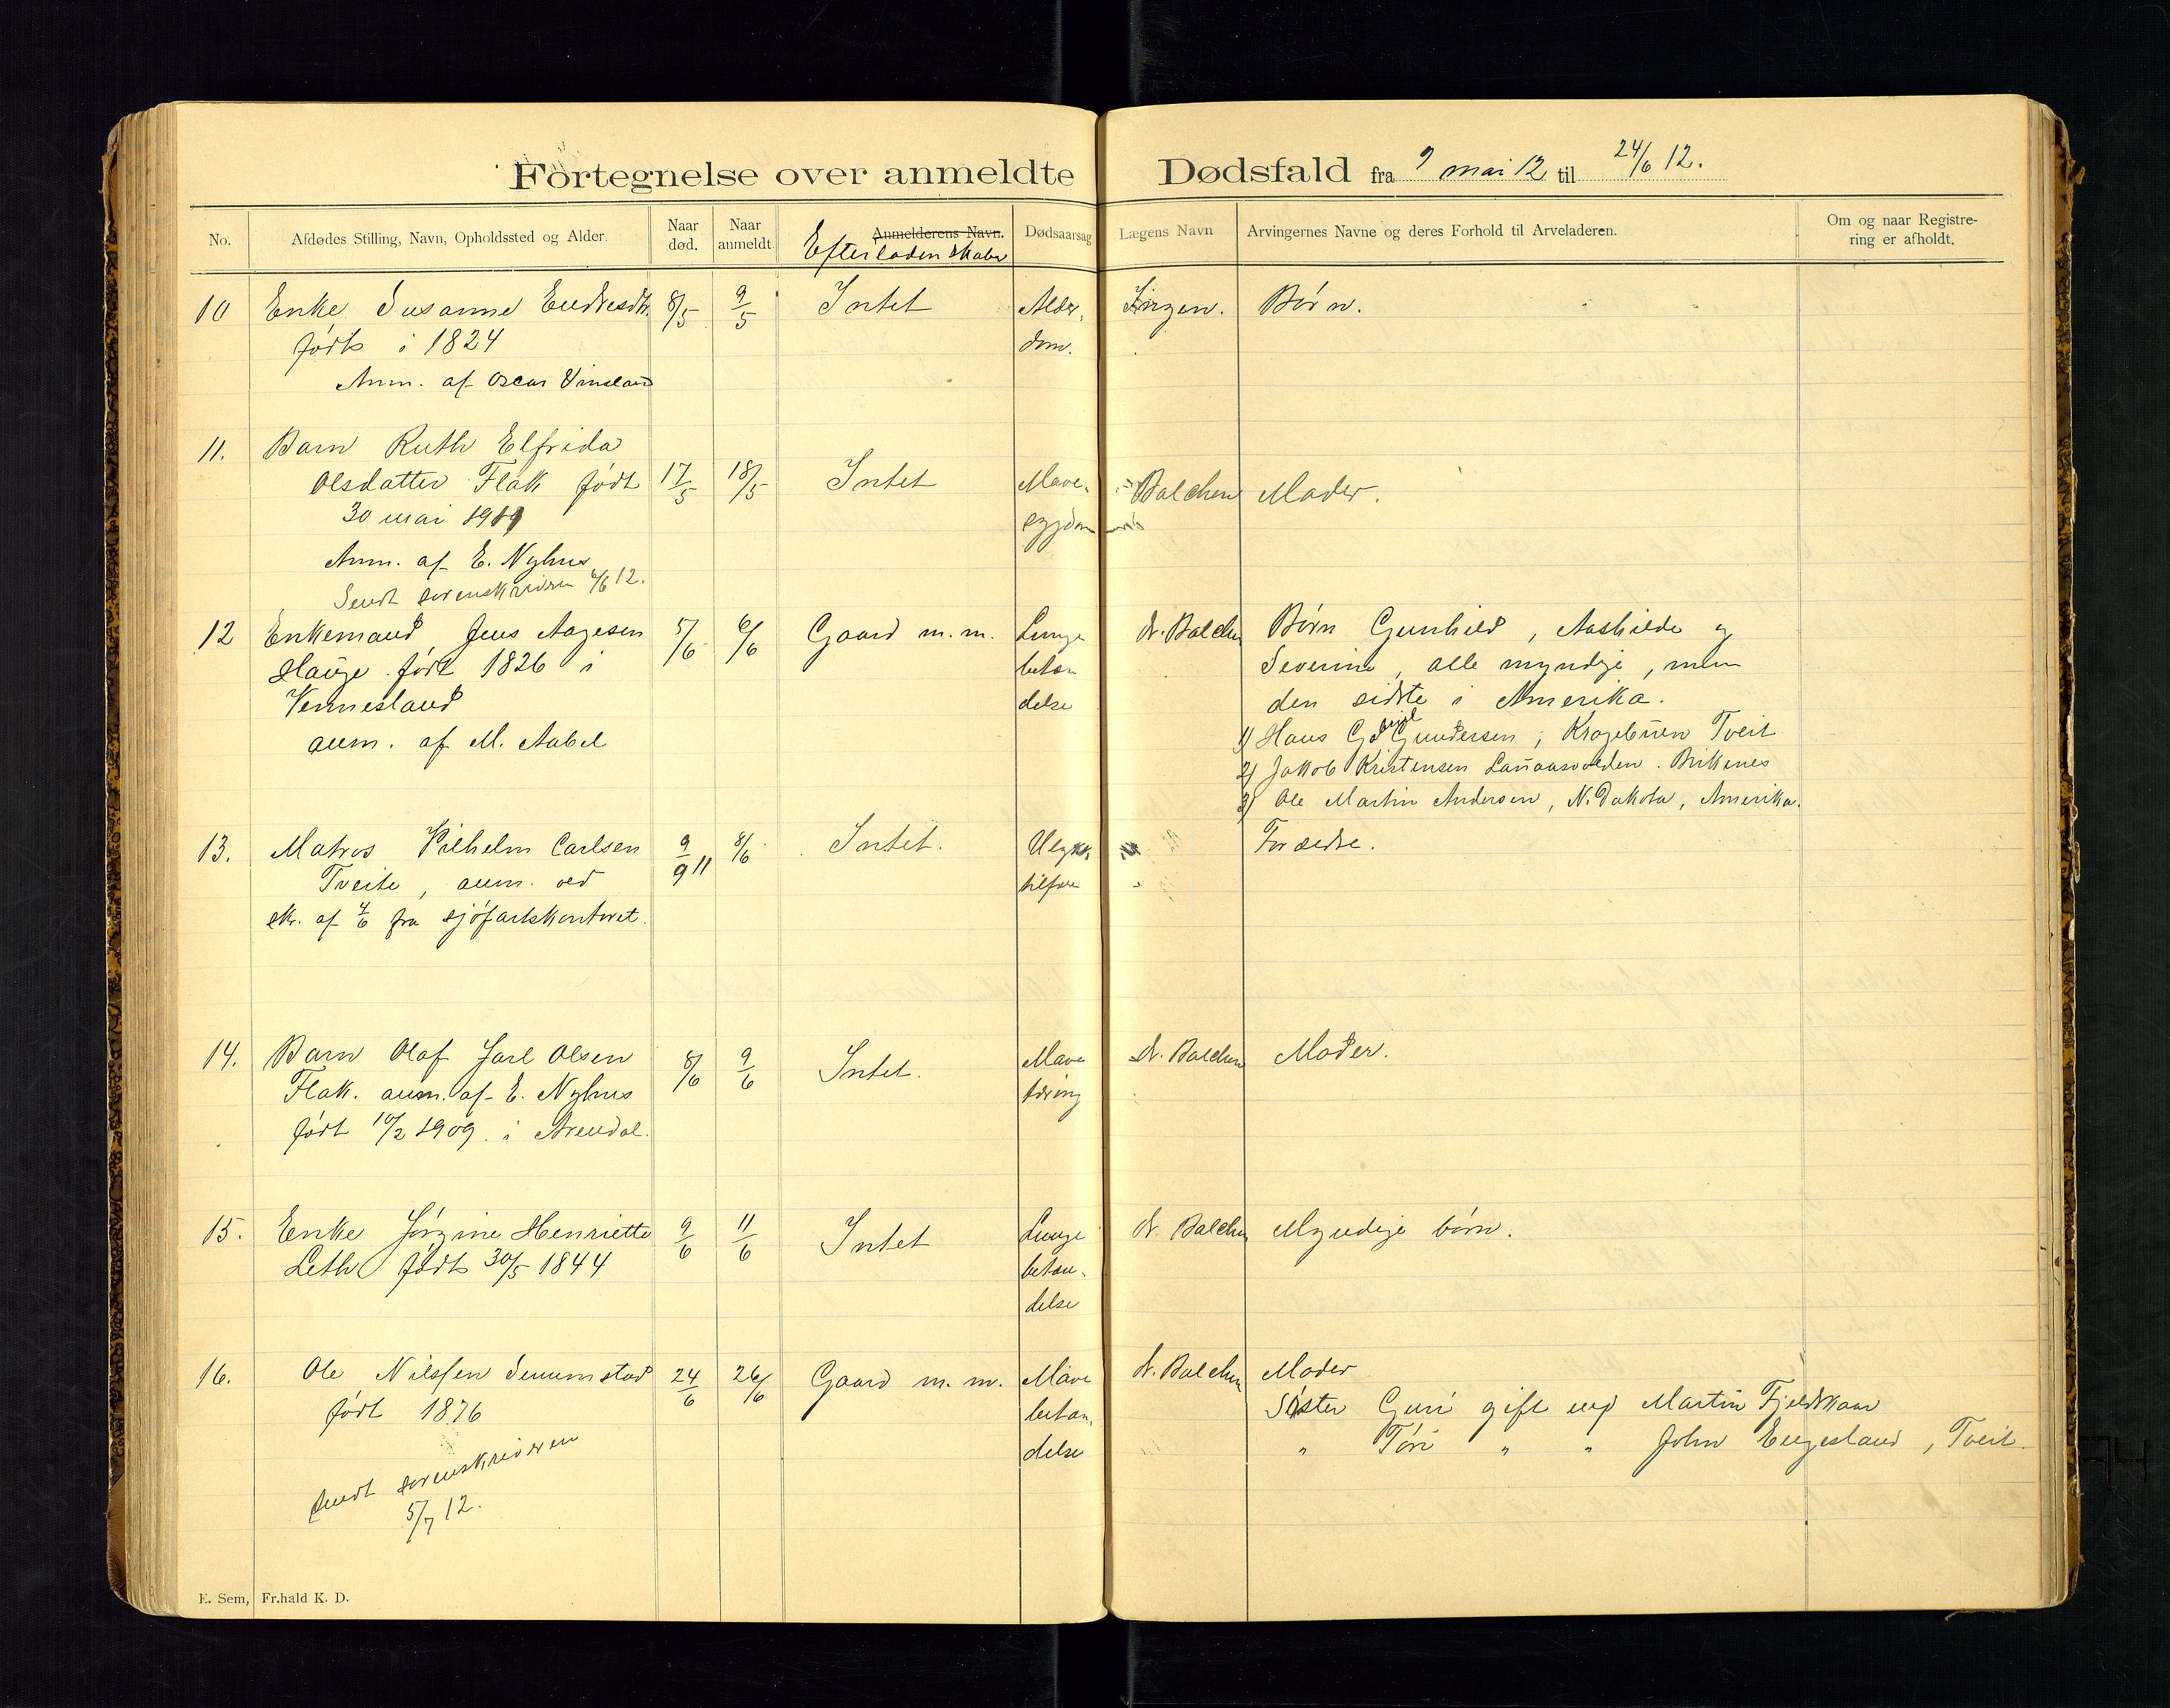 Fortegnelse over anmeldte Dødsfald fra 9 mai 12 til 24/6 12.
No. Afdødes Stilling, Navn, Opholdssted og Alder. Naar død. Naar anmeldt. Anmelderens Navn. Efterladenskaber Dødsaarsag Lægens Navn Arvingernes Navne og deres Forhold til Arveladeren. Om og naar Registrering er afholdt.
10 Enke Susanne Endresdtr. 8/5 9/5 Intet Alder- Ingen. Børn.
født i 1824 dom.
Anm. af Oscar Vinsland
11. Barn Ruth Elfrida
Olsdatter Flak født 17/5 18/5 Intet Mave- Balchen Moder.
30 mai 1911 sygdom
Anm. af E. Nyhus
Sendt sorenskriveren 6/6 12.
12 Enkemand Jens Aagesen 5/6 6/6 Gaard m.m. Lunge dr. Balchen Børn Gunhild, Aashilde og
Hauge født 1826 i betæn Severine, alle myndige, men
Vennesland delse den sidste i Amerika.
anm. af M. Aabel 1) Hans Gundersen, Kragebuen Tveit
2) Jakob Kristensen Birkenes
3) Ole Martin Andersen, N. Dakota, Amerika.
13. Matros Vilhelm Carlsen 9/9 11 8/6 Intet. Ulyk- Forældre.
Tveite, anm. ved tilfæl
skr. af 4/6 fra sjøfartskontoret.
14. Barn Olaf Jarl Olsen 8/6 9/6 Intet. Mave dr. Balchen Moder.
Flak. anm. af E. Nyhus tæring
født 10/2 1909 i Arendal.
15. Enke Jørgine Henriette 9/6 11/6 Intet Lunge dr. Balchen Myndige børn.
Leth født 30/5 1844 betæn-
delse
16. Ole Nilssen Semmstad 24/6 26/6 Gaard m.m. Mave dr. Balchen Moder
født 1876 betæn- Søster Guri gift m/ Martin Fjeldskaar
delse " Tori " " John Engesland, Tveit.
sendt sorenskriveren
5/7 12.
E. Sem, Fr.hald K. D.